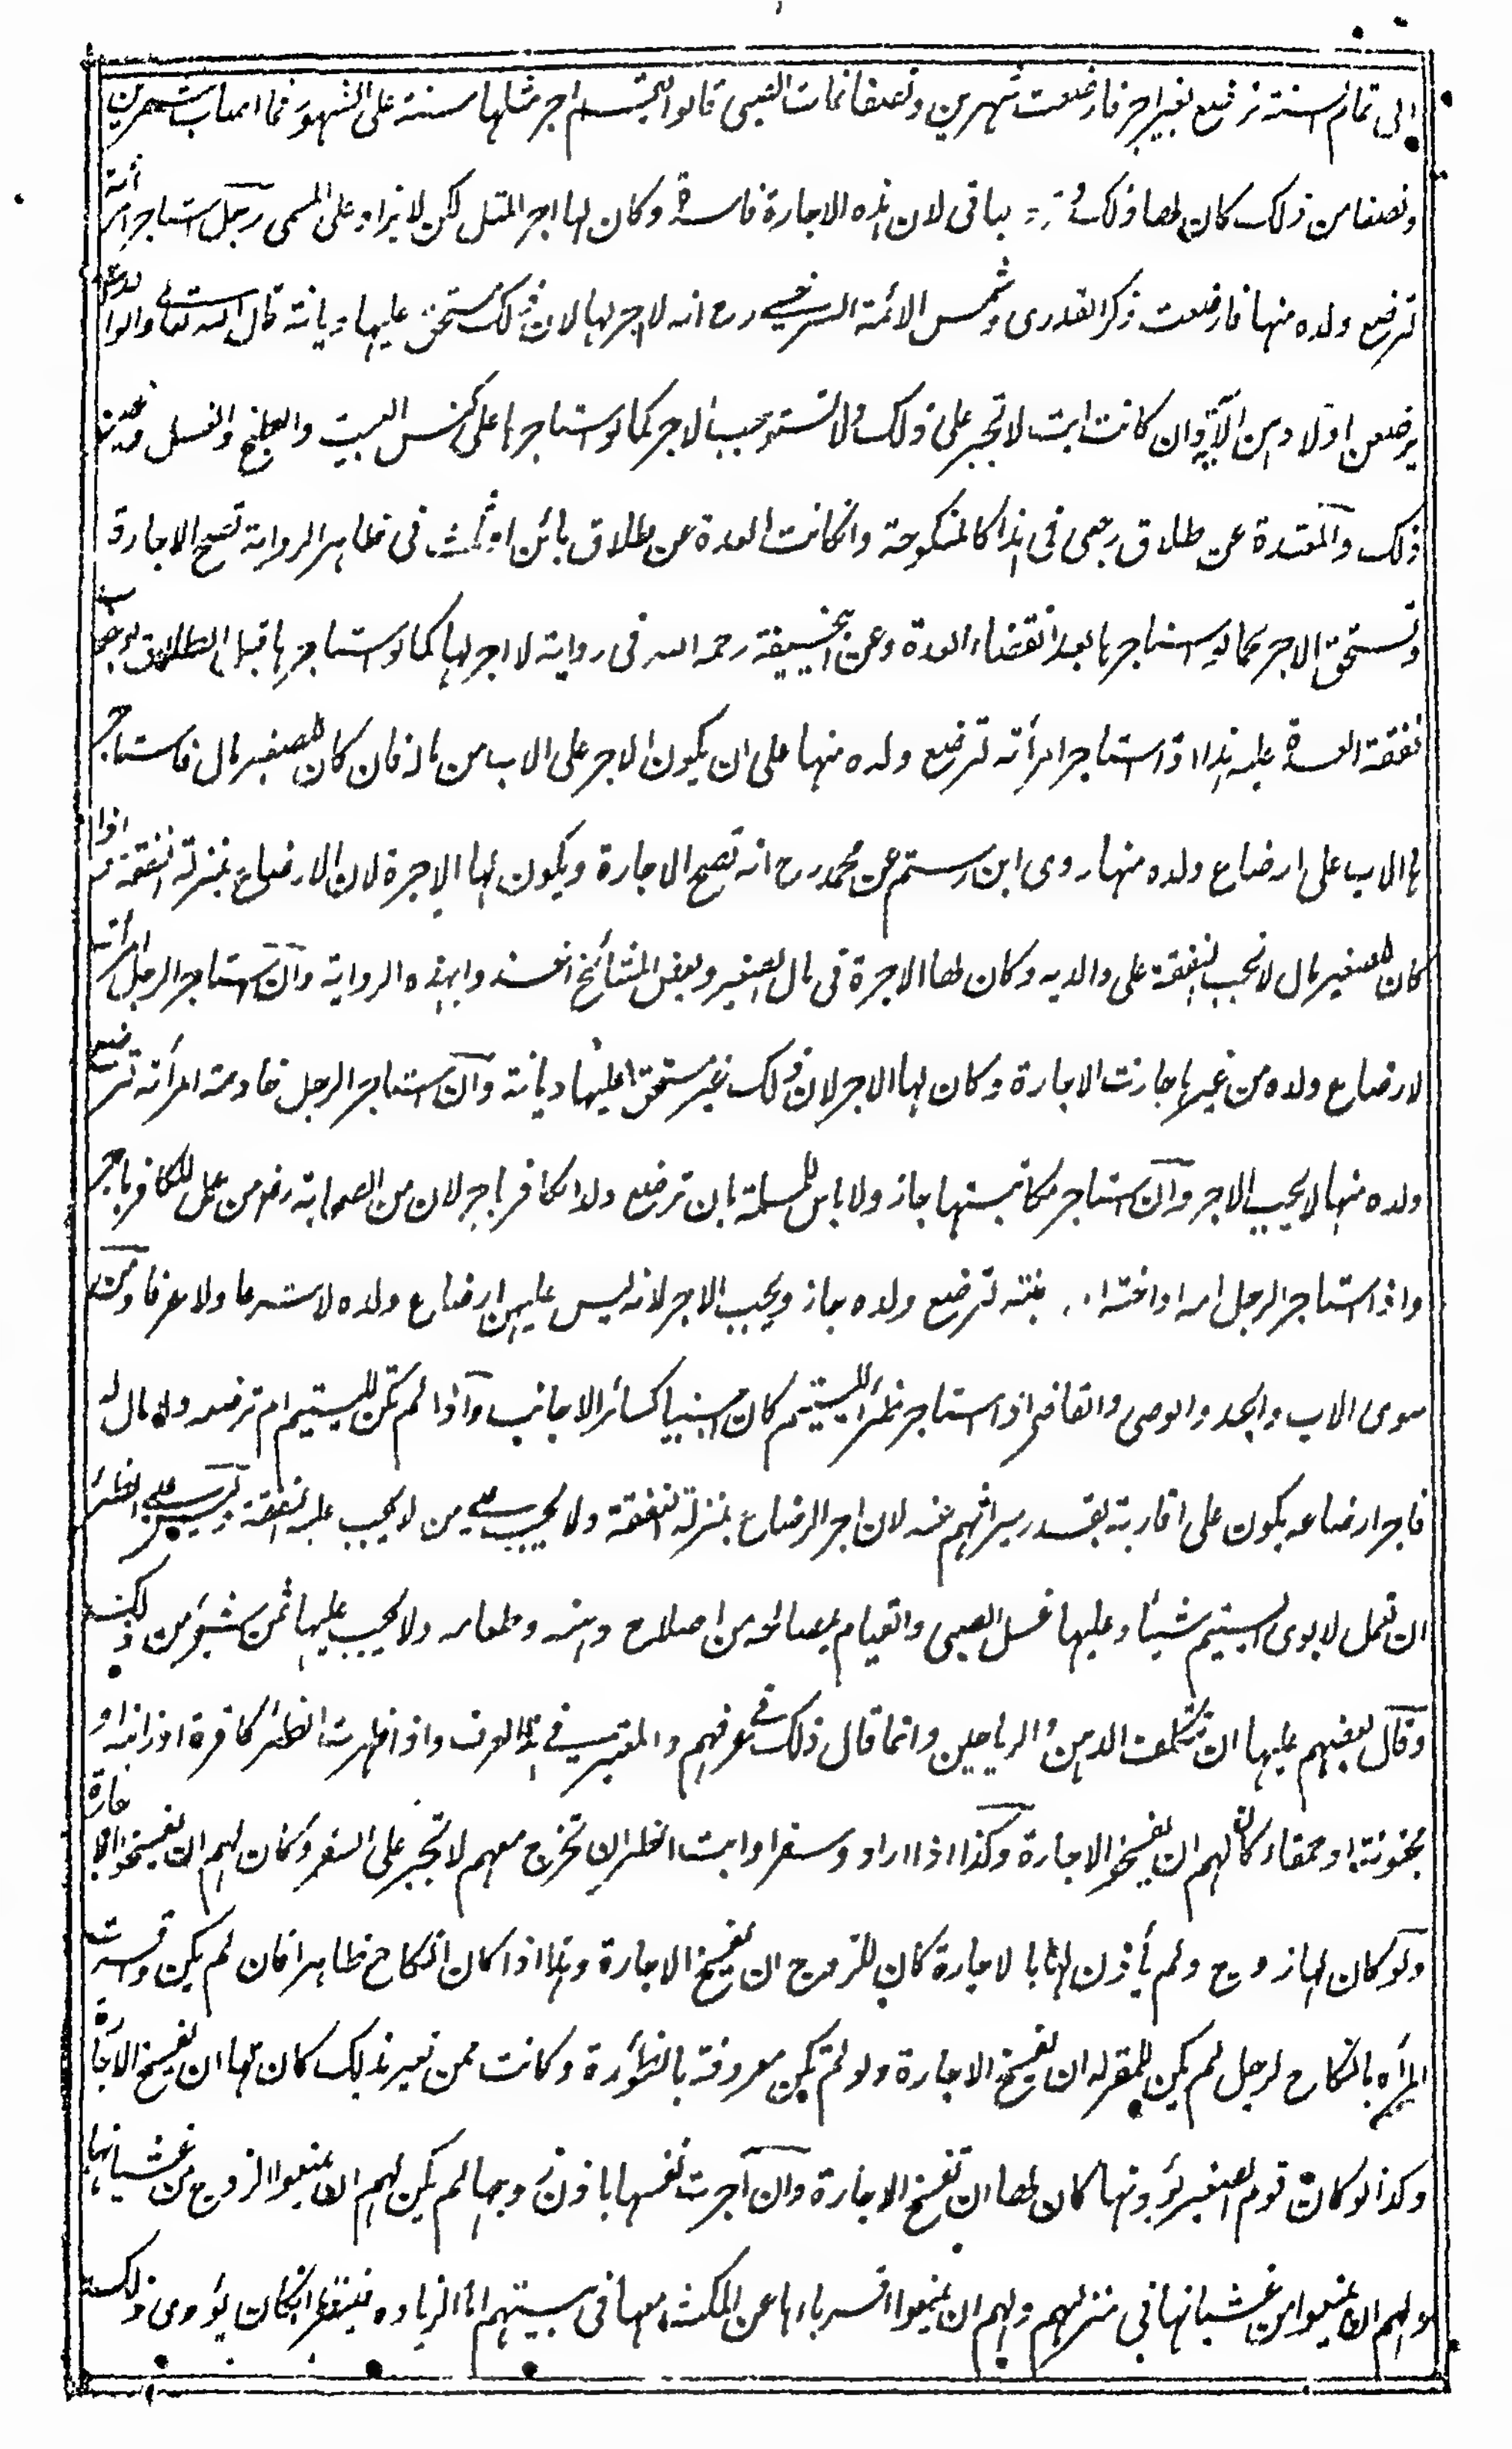 الى تمام السنة ترضع بغير اجر فارضعت شهرين ونصفا فمات الصبى قالوا يقسم اجر مثلها سنة على الشهور فما اصاب شهرين
ونصفا من ذلك كان لها ذلك باقى لان هذه الاجارة فاسدة وكان لها اجر المثل لكن لا يزاد على المسمى رجل استاجر امرأته
ترضع ولده منها فارضعت ذكر القدورى وشمس الائمة السرخسى رح انه لا اجر لها لان ذلك مستحق عليها ديانة قال الله تعالى والوالدات
يرضعن اولادهن الآية وان كانت ابت لا تجبر على ذلك ولا تستوجب الاجر كما لو استاجرها على كنس البيت والطبخ والغسل وغير
ذلك والمعتدة عن طلاق رجعى فى هذا كالمنكوحة وانكانت العدة عن طلاق بائن او ثلث فى ظاهر الرواية تصح الاجارة
وتستحق الاجر كما لو استاجرها بعد انقضاء العدة وعن ابيحنيفة رحمه الله فى رواية لا اجر لها كما لو استاجرها قبل الطلاق لوجوب
نفقة العدة عليه هذا اذا استاجر امرأته ترضع ولده منها على ان يكون الاجر على الاب من ماله فان كان للصغير مال فاستاجر
ها الاب على ارضاع ولده منها روى ابن رستم عن محمد رح انه تصح الاجارة ويكون لها الاجرة لان الارضاع بمنزلة النفقة اذا
كان للصغير مال لا تجب النفقة على والديه وكان لها الاجرة فى مال الصغير وبعض المشائخ اخذوا بهذه الرواية وان استاجر الرجل امرأته
لارضاع ولده من غيرها جازت الاجارة وكان لها الاجر لان ذلك غير مستحق عليها ديانة وان استاجر الرجل خادمة امرأته ترضع
ولده منها لا يجب الاجر وان استاجر مكاتبتها جاز ولا باس للمسلمة بان ترضع ولد الكافر باجر لان من الصحابة رض من عمل للكافر باجر
واذا استاجر الرجل امه او اخته او بنته ترضع ولده جاز ويجب الاجر لانه ليس عليهن ارضاع ولده لا شرعا ولا عرفا ومن
سوى الاب والجد والوصى والقاضى اذا استاجر ظئر لليتيم كان اجنبيا كسائر الاجانب واذا لم تكن لليتيم ام ترضعه ولا مال له
فاجر ارضاعه يكون على اقاربه بقدر ميراثهم عنه لان اجر الرضاع بمنزلة النفقة ولا يجب على من لا يجب عليه النفقة وليس على الظئر
ان تعمل لابوى اليتيم شيئا وعليها غسل الصبى والقيام بمصالحه من اصلاح دهنه وطعامه ولا يجب عليها ثمن شىء من ذلك
وقال بعضهم عليها ان تتكلف الدهن والرياحين وانما قال ذلك فى عرفهم والمعتبر فى هذا العرف واذا ظهرت الظئر كافرة او زانية او
مجنونة او حمقاء كان لهم ان يفسخوا الاجارة وكذا اذا ارادوا سفرا وابت الظئر ان تخرج معهم لا تجبر على السفر وكان لهم ان يفسخوا الاجارة
ولو كان لها زوج ولم يأذن لها بالاجارة كان للزوج ان يفسخ الاجارة وهذا اذا كان النكاح ظاهرا فان لم يكن واقرت
المرأه بالنكاح لرجل لم يكن للمقر له ان يفسخ الاجارة ولو لم تكن معروفة بالظؤرة وكانت ممن تعير بذلك كان لها ان تفسخ الاجارة
وكذا لو كان قوم الصغير يؤذونها كان لها ان تفسخ الاجارة وان آجرت نفسها باذن زوجها لم يكن لهم ان يمنعوا الزوج من غشيانها
ولهم ان يمنعوا من غشيانها فى منزلهم ولهم ان يمنعوا اقرباءها عن المكث معها فى بيتهم اما الزياده فينظر انكان يؤدى ذلك